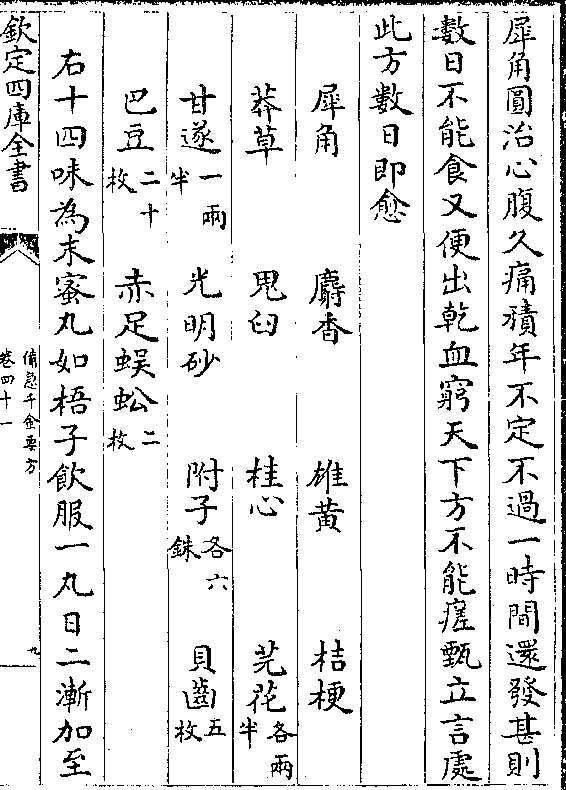 犀角圓治心腹久痛積年不定不過一時間還發甚則
數日不能食又便出乾血窮天下方不能瘥甄立言處
此方數日即愈
犀角 麝香 雄黃 桔梗
莽草 鬼臼 桂心 芫花各半兩
甘遂一兩半 光明砂 附子各六銖 貝齒五枚
巴豆二十枚 赤足蜈蚣二枚
右十四味為末蜜丸如梧子飲服一丸日二漸加至
欽定四庫全書
備急千金要方
卷四十一
九